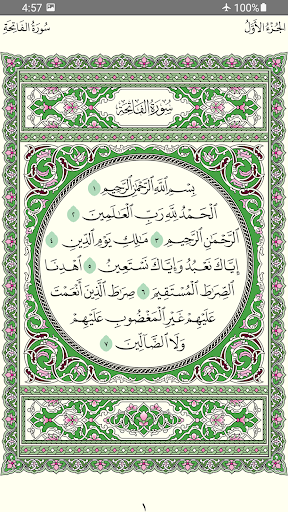 4:57 100%
الجُزءُ الأَوَّلُ سُورَةُ الفَاتِحَةِ
سُورَةُ الفَاتِحَةِ
بِسْمِ ٱللَّهِ ٱلرَّحْمَٰنِ ٱلرَّحِيمِ ١
ٱلْحَمْدُ لِلَّهِ رَبِّ ٱلْعَٰلَمِينَ ٢
ٱلرَّحْمَٰنِ ٱلرَّحِيمِ ٣ مَٰلِكِ يَوْمِ ٱلدِّينِ ٤
إِيَّاكَ نَعْبُدُ وَإِيَّاكَ نَسْتَعِينُ ٥ ٱهْدِنَا
ٱلصِّرَٰطَ ٱلْمُسْتَقِيمَ ٦ صِرَٰطَ ٱلَّذِينَ أَنْعَمْتَ
عَلَيْهِمْ غَيْرِ ٱلْمَغْضُوبِ عَلَيْهِمْ
وَلَا ٱلضَّآلِّينَ ٧
١